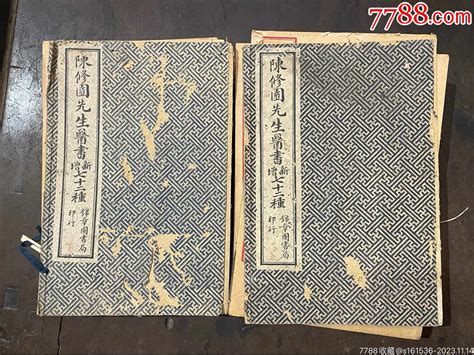 7788.com
陳修園先生醫書新增七十二種
錦章圖書局
印行
陳修園先生醫書新增七十二種
錦章圖書局
印行
7788收藏@s161536-2023.11.14